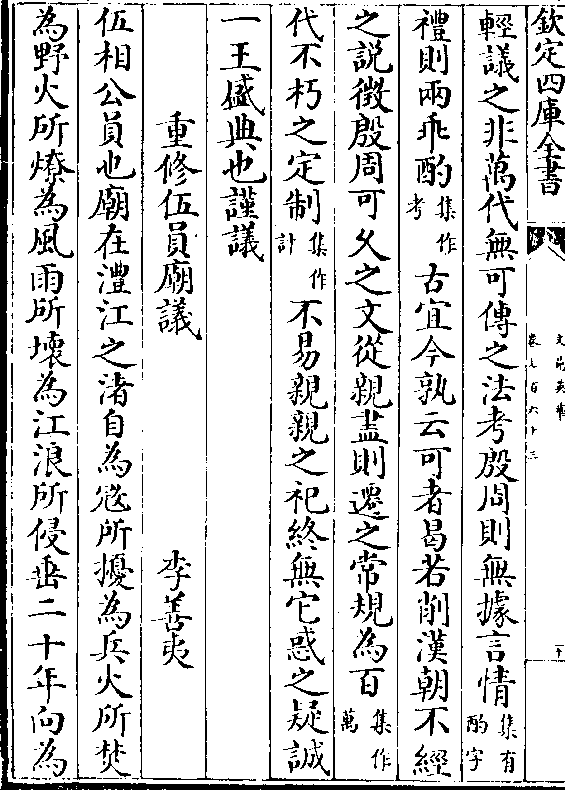 欽定四庫全書
文苑英華
卷七百六十三
輕議之非萬代無可傳之法考殷周則無據言情集有酌字
禮則兩乖酌集作考古宜今孰云可者曷若削漢朝不經
之説徵殷周可久之文從親盡則遷之常規為百集作萬
代不朽之定制集作計不易親親之祀終無它惑之疑誠
一王盛典也謹議
重修伍員廟議 李善夷
伍相公員也廟在澧江之渚自為寇所擾為兵火所焚
為野火所燎為風雨所壞為江浪所侵垂二十年向為